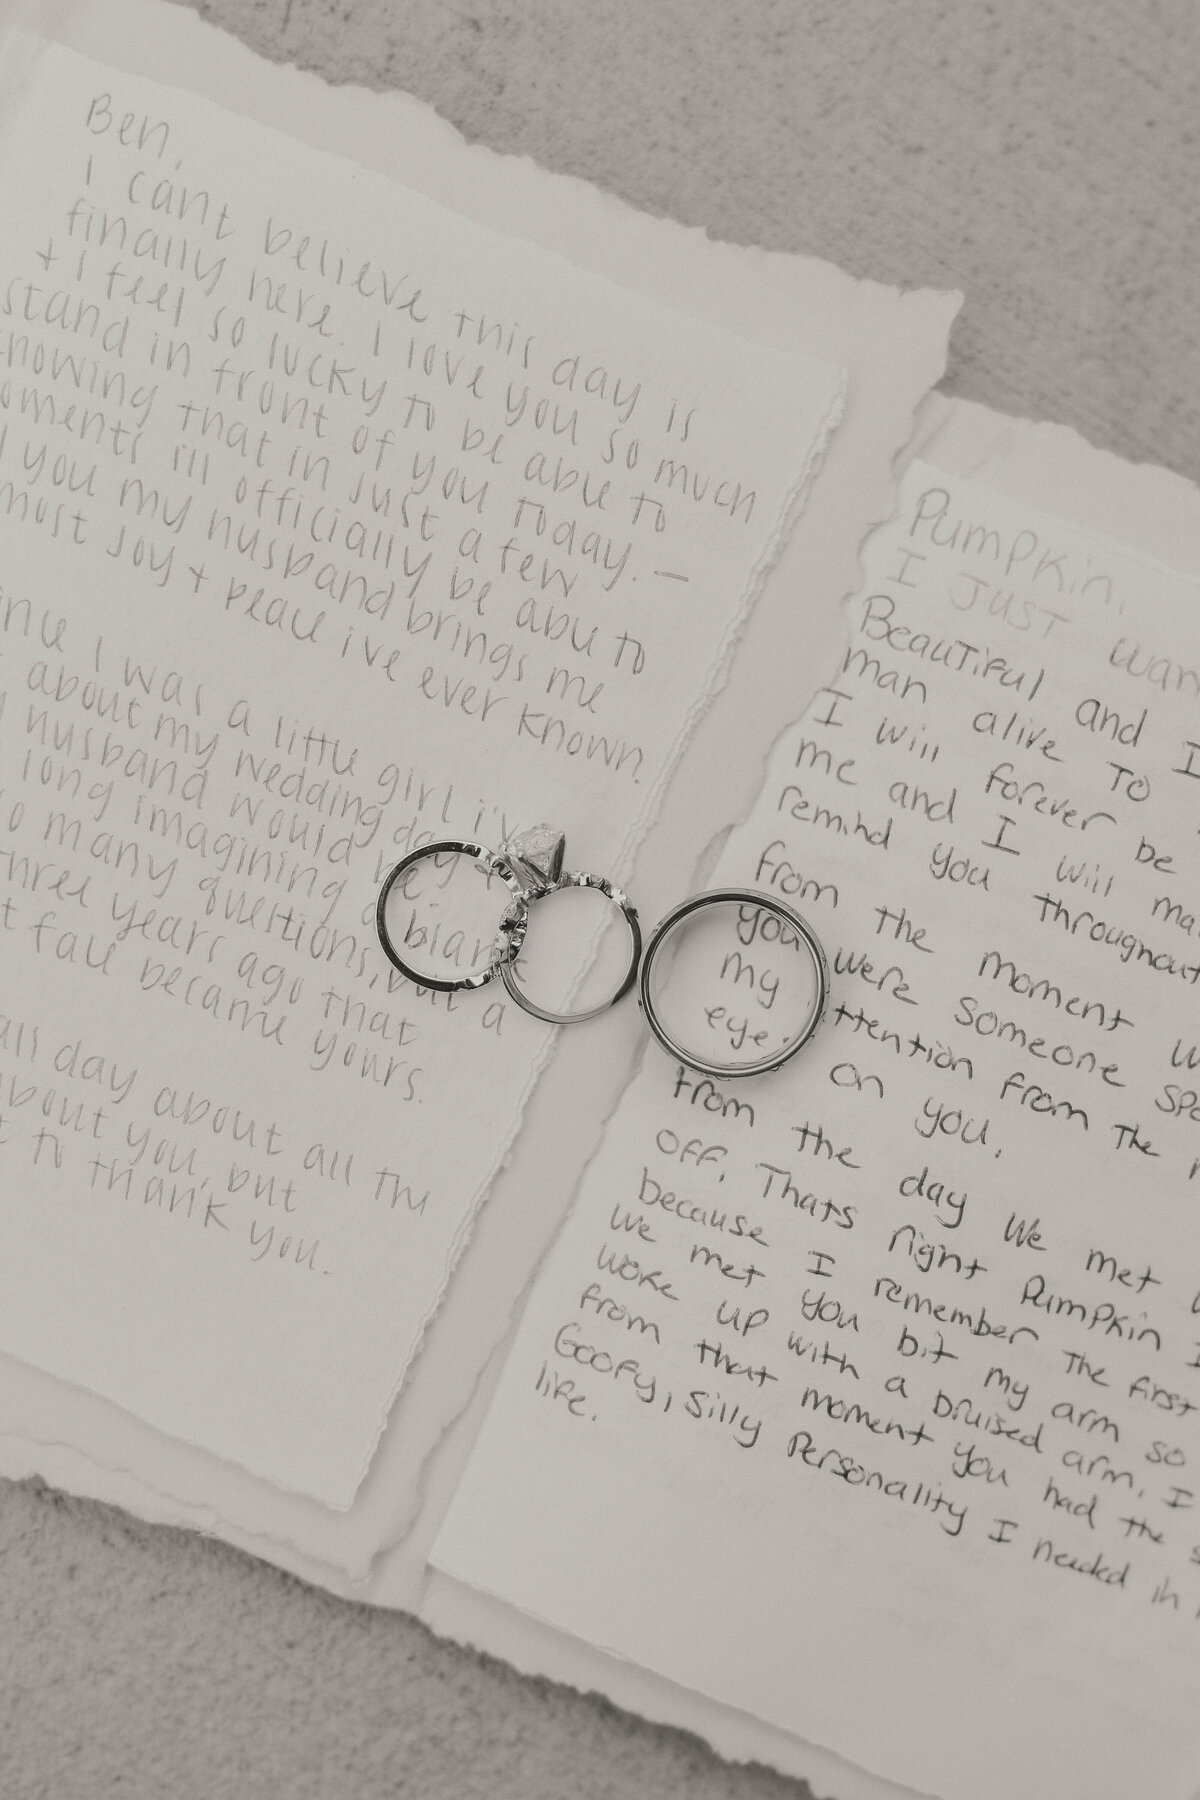 Ben,
I can't believe this day is
finally here. I love you so much
+ I feel so lucky to be able to
stand in front of you today. —
knowing that in just a few
moments ill officially be able to
you my husband brings me
most joy + peace ive ever known.
I was a little girl i've
about my wedding day +
husband would be.
long imagining a blank
so many questions, but a
three years ago that
fall became yours.
all day about all the
about you, but
to thank you.
Pumpkin,
I Just want
Beautiful and I
man alive to
I will forever be
me and I will ma
remind you throughout
from the moment w
you were someone spe
my attention from the
eye. on you.
from the day we met
off. Thats right Pumpkin I
because I remember the first
we met you bit my arm so
woke up with a bruised arm. I
from that moment you had the s
Goofy, Silly Personality I needed in
life.